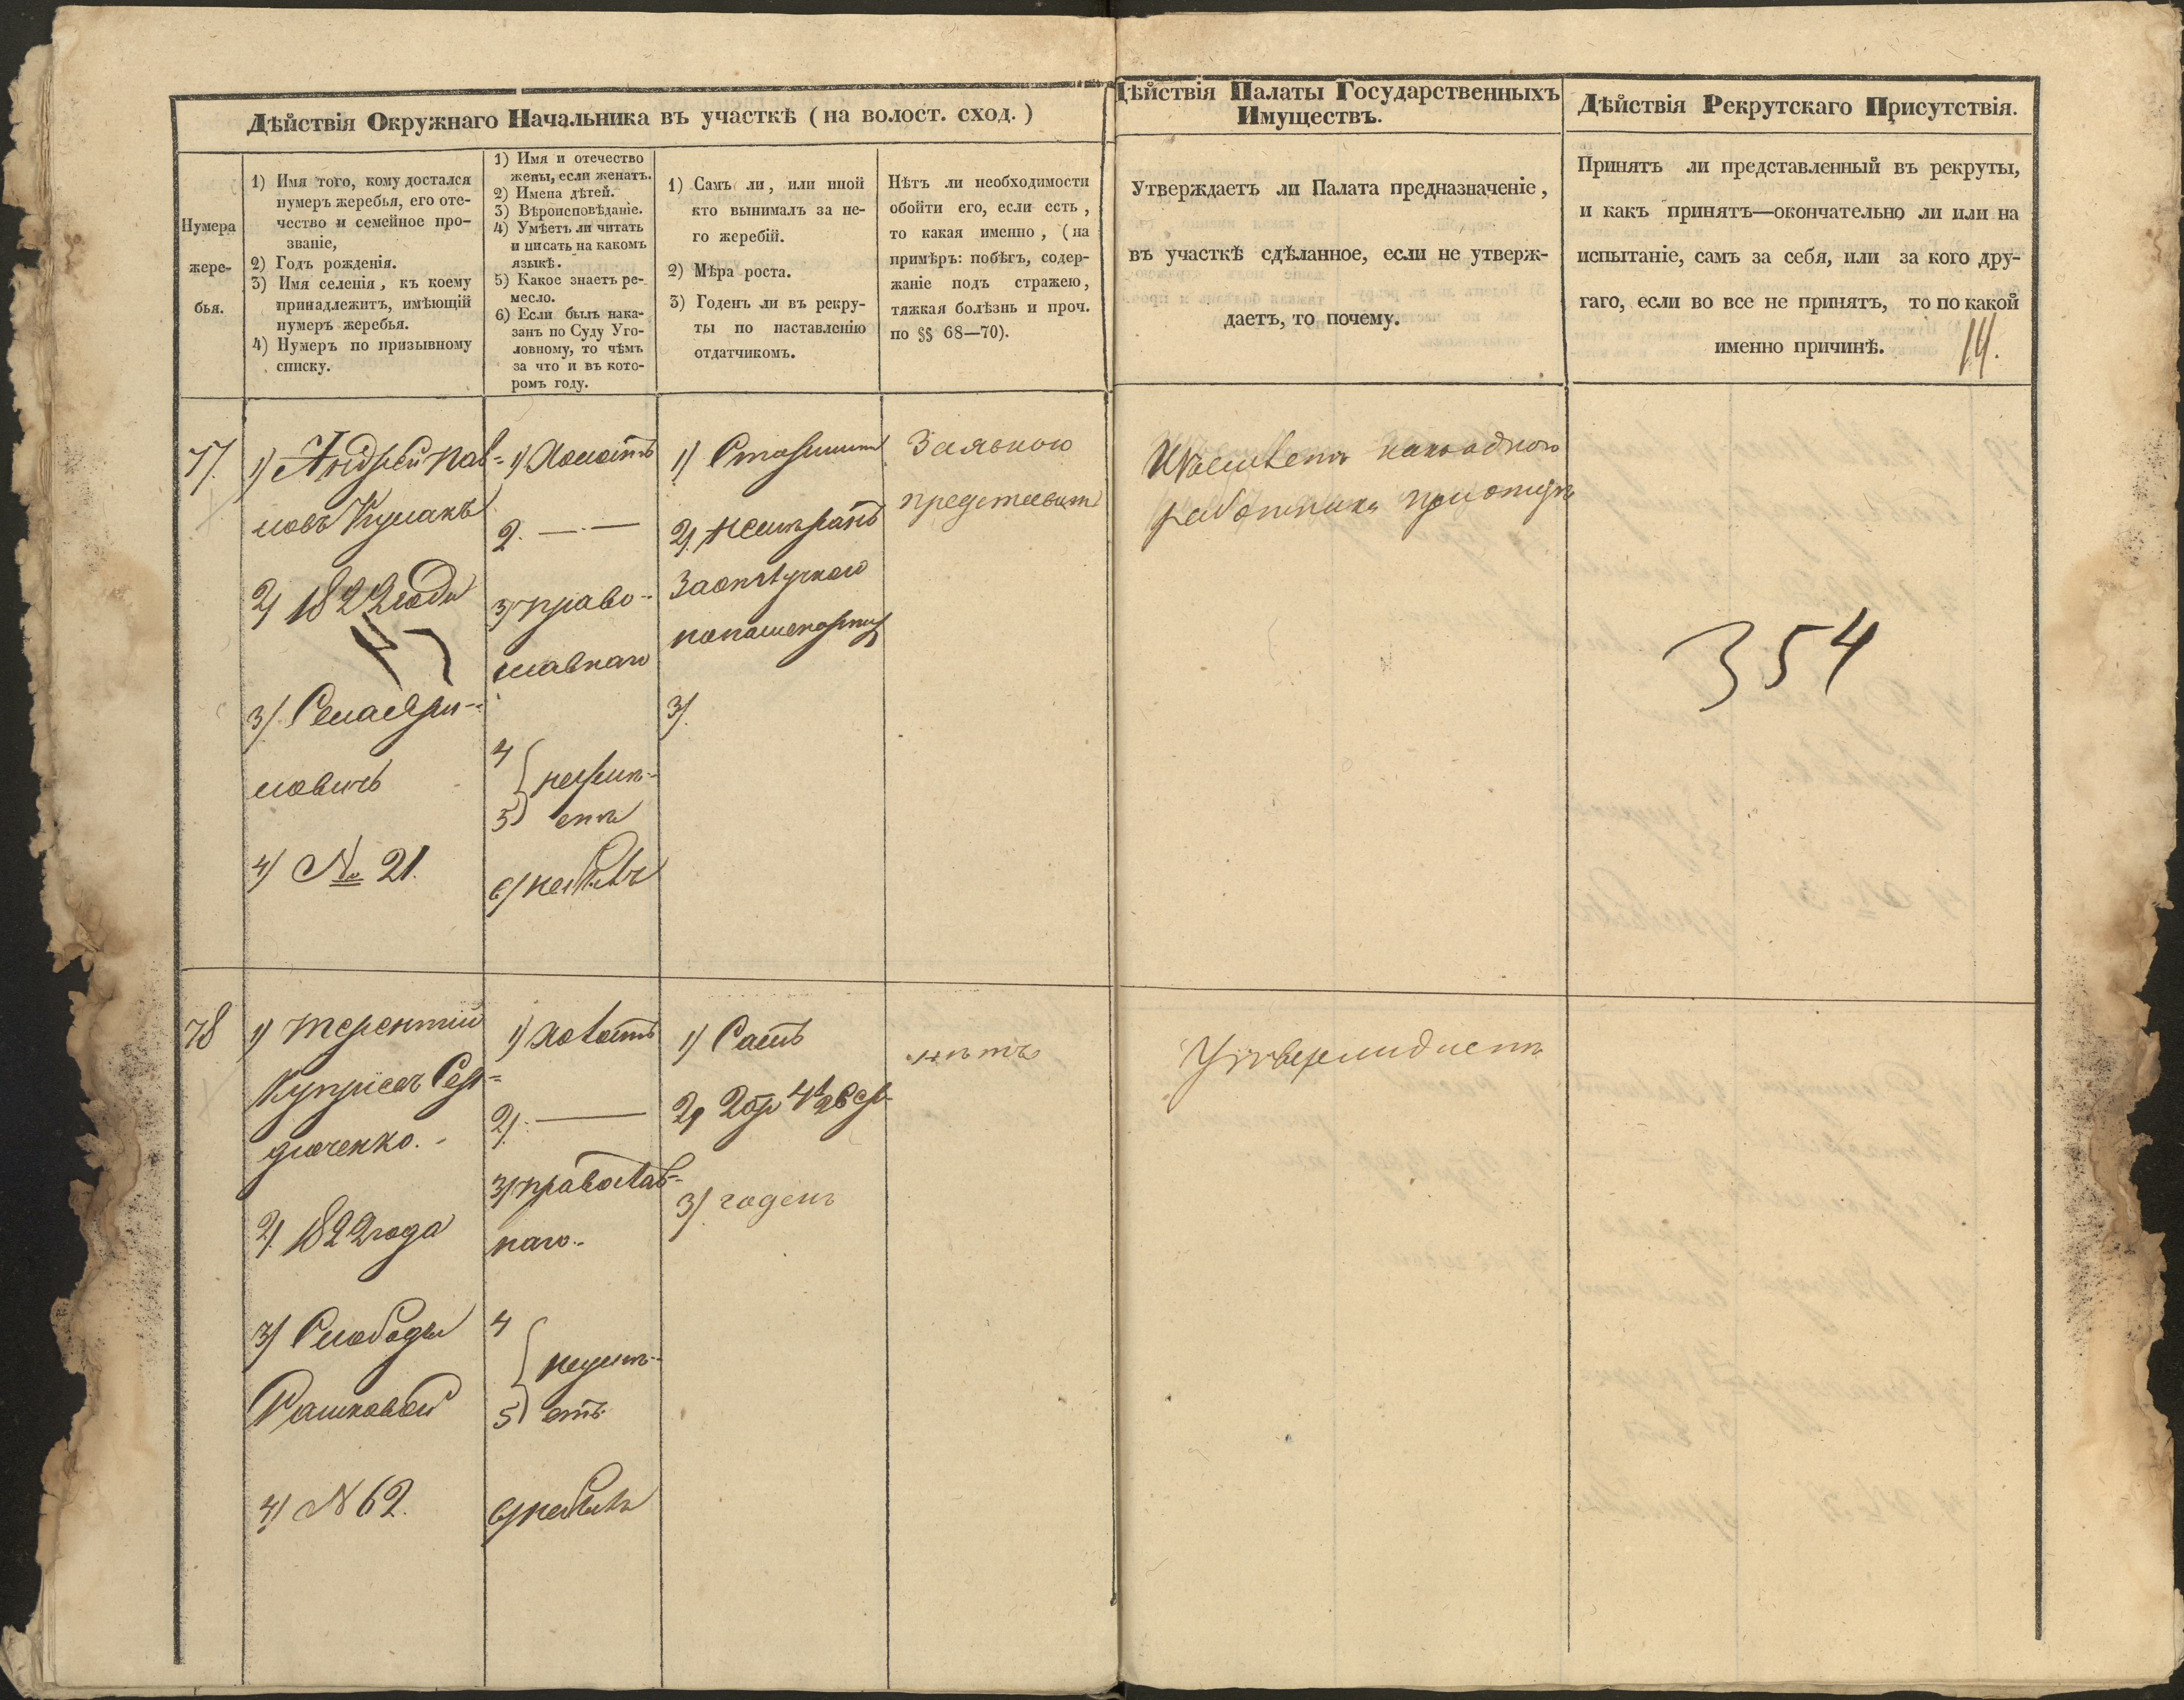 Дѣйствія Окружнаго Начальника въ участкѣ (на волост. сход.)
Нумера
жере-
бья.
1) Имя того, кому достался
нумеръ жеребья, его оте-
чество и семейное про-
званіе,
2) Годъ рожденія.
3) Имя селенія, къ коему
принадлежитъ, имѣющій
нумеръ жеребья.
4) Нумеръ по призывному
списку.
1) Имя и отечество
жены, если женатъ.
2) Имена дѣтей.
3) Вѣроисповѣданіе.
4) Умѣетъ ли читать
и писать на какомъ
языкѣ.
5) Какое знаетъ ре-
месло.
6) Если былъ нака-
занъ по Суду Уго-
ловному, то чѣмъ
за что и въ кото-
ромъ году.
1) Самъ ли, или иной
кто вынималъ за не-
го жеребій.
2) Мѣра роста.
3) Годенъ ли въ рекру-
ты по наставленію
отдатчикомъ.
Нѣтъ ли необходимости
обойти его, если есть,
то какая именно, (на
примѣръ: побѣгъ, содер-
жаніе подъ стражею,
тяжкая болѣзнь и проч.
по §§ 68—70).
Дѣйствія Палаты Государственныхъ
Имуществъ.
Утверждаетъ ли Палата предназначеніе,
въ участкѣ сдѣланное, если не утверж-
даетъ, то почему.
Дѣйствія Рекрутскаго Присутствія.
Принятъ ли представленный въ рекруты,
и какъ принятъ—окончательно ли или на
испытаніе, самъ за себя, или за кого дру-
гаго, если во все не принятъ, то по какой
именно причинѣ.
14.
77.
1) Андрей Пав-
ловъ Кулакъ
2) 1822 года
3) Села Яри-
ловичь
4) № 21.
1) Холостъ
2. — —
3) право-
славнаго
4
5) неумѣ-
етъ
6) небылъ
1)
2)
3)
представить
работника
354
78
1) Терентій
Купріевъ Сер-
дюченко.
2) 1822 года
3) Слободы
Рашковой
4) N 62.
1) Холостъ
2) —
3) православ-
наго.
4
5) неумѣ-
етъ
6) небылъ
1) Самъ
2) 2 ар 4 ½ вер
3) годенъ
нѣтъ
Утверждаетъ